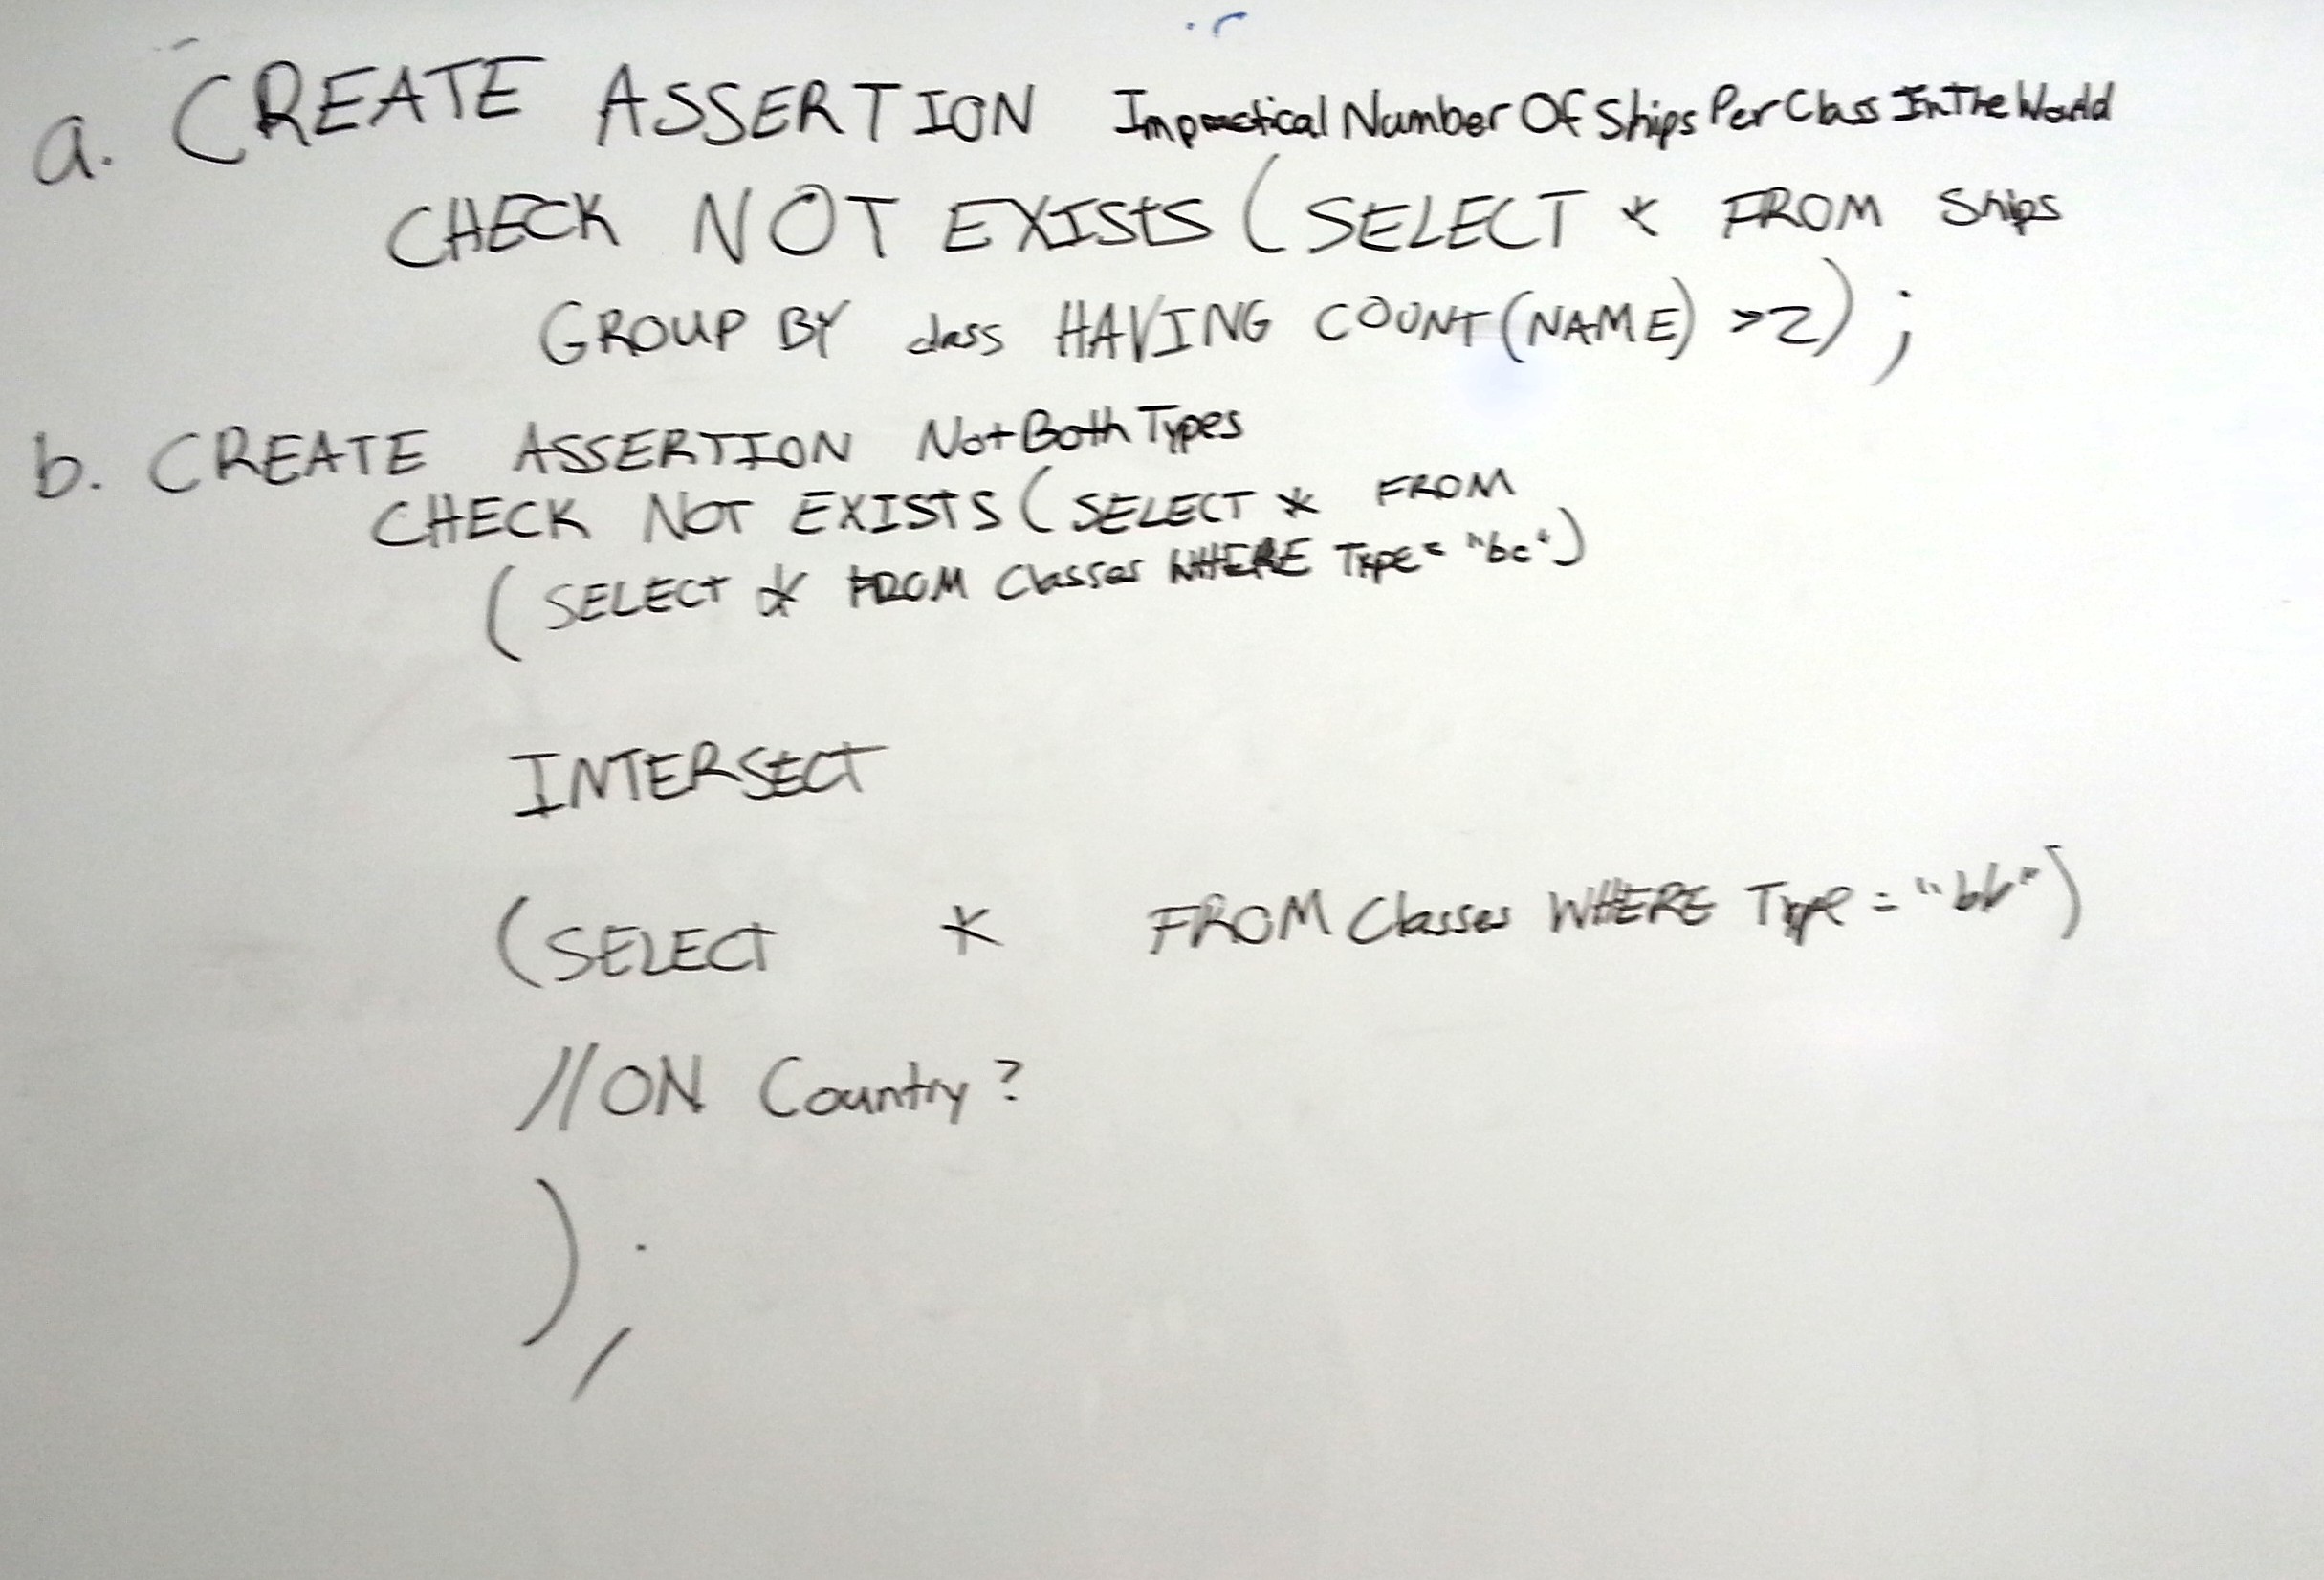 a. CREATE ASSERTION Impractical Number Of Ships Per Class In The World
CHECK NOT EXISTS (SELECT * FROM Ships
GROUP BY class HAVING COUNT(NAME) >2);
b. CREATE ASSERTION Not Both Types
CHECK NOT EXISTS (SELECT * FROM
(SELECT * FROM Classes WHERE Type = "bc")
INTERSECT
(SELECT * FROM Classes WHERE Type = "bb")
//ON Country?
);